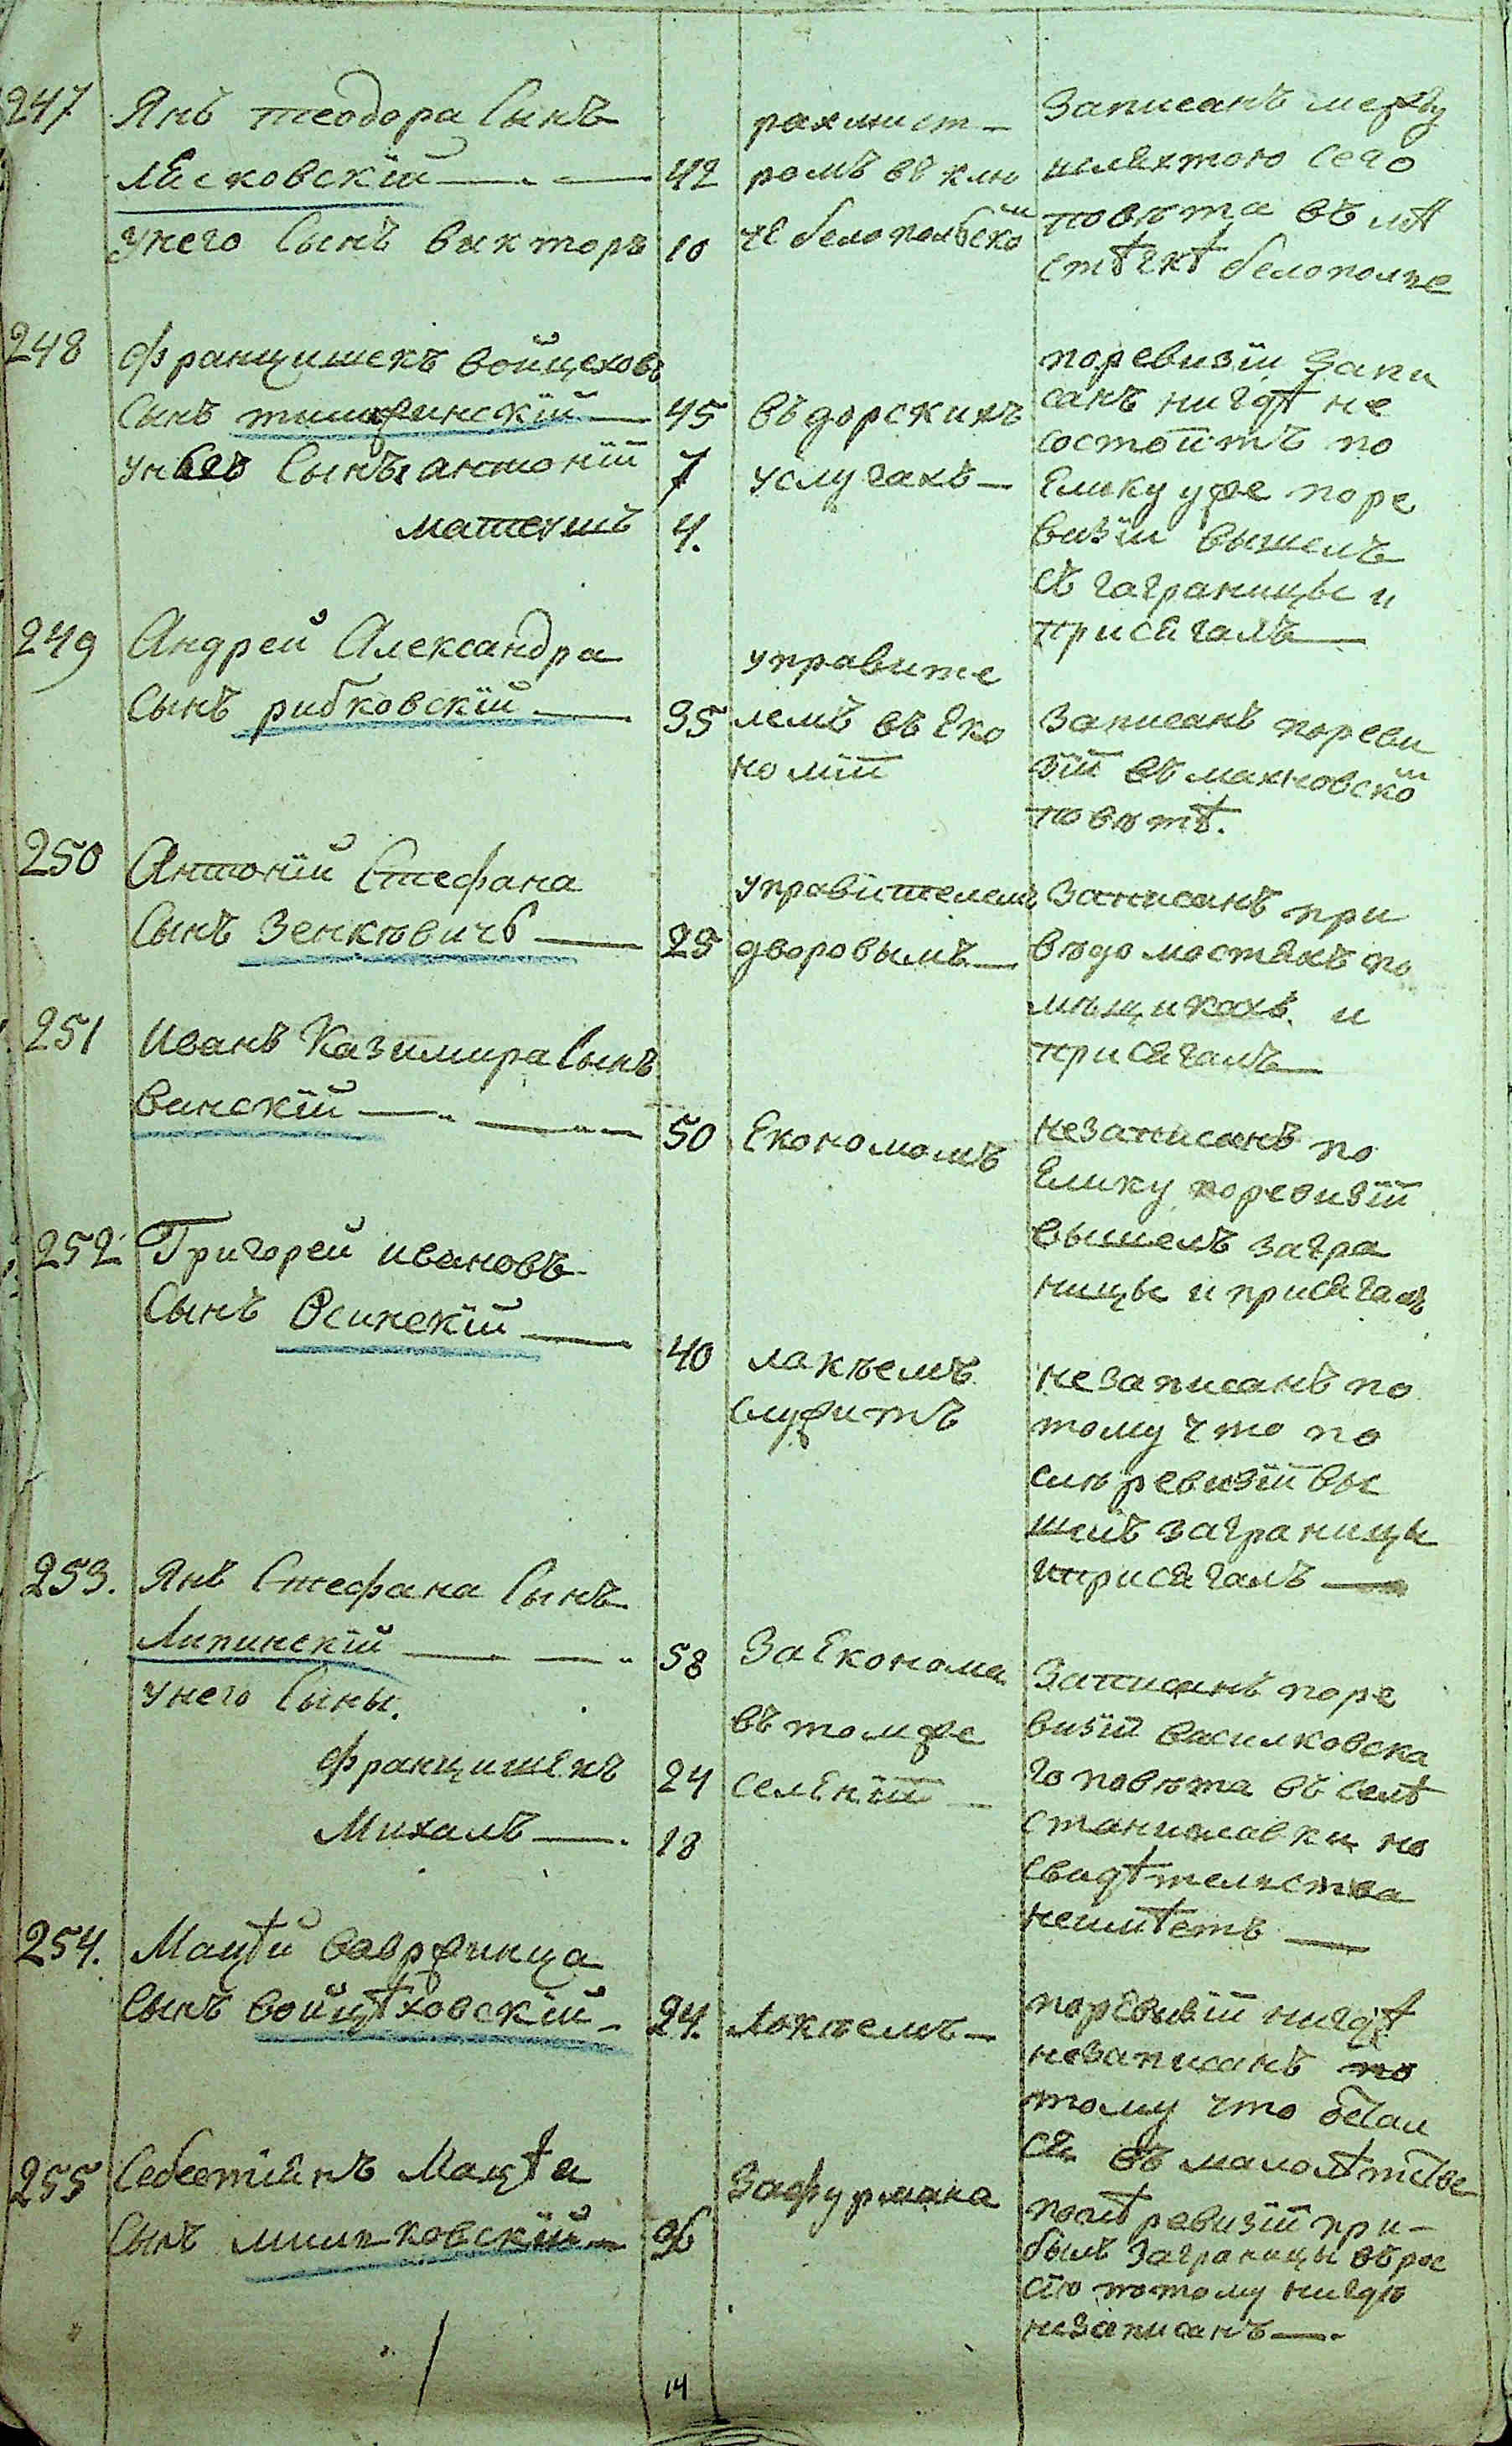 247 Янъ теодора Сынъ
лѣсковскій 42
унего Сынъ викторъ 10
рахмист-
ромъ въ клю
че белополбско й
Записанъ между
шляхтою Сего
повѣта въ мѣ
стѣчкѣ белополье
248 францишекъ войцеховъ
Сынъ 45
унего Сынъ антоній 7
матеушъ 4.
въ дорскихъ
услугахъ
поревизіи запи
санъ нигдѣ не
состоитъ по
Елику уже поре
визіи вышелъ
съ заграницы и
присягалъ
249 Андрей Александра
Сынъ рибковскій 35
управите
лемъ въ Еко
номіи
Записанъ пореви
зіи въ махновско й
повѣтѣ.
250 Антоній Стефана
Сынъ Зенкѣвичъ 25
управителемъ
дворовымъ
Записанъ при
вѣдомостяхъ по
мѣщикахъ и
присягалъ
251 Иванъ Казимира Сынъ
Ванскій 50
Економомъ
незаписанъ по
Елику поревизіи
вышелъ загра
ницы и присягалъ
252 Григорей ивановъ
Сынъ Осинскій 40
лакѣемъ
служитъ
незаписанъ по
тому что по
слѣ ревизіи вы
шелъ заграницы
иприсягалъ
253. Янъ Стефана Сынъ
Липинскій 58
унего Сыны.
францишекъ 24
Михалъ 18
За Економа
въ томже
селеніи
Записанъ поре
визіи василковска
го повѣта въ селѣ
станиславки но
свидѣтельства
неимѣетъ
254. Мацѣй вавржинца
Сынъ войцѣховскій 24.
Локѣемъ
поревизіи нигдѣ
незаписанъ по
тому что осталь
ся въ малолѣтствѣ
255 Себестіянъ Мацѣя
Сынъ милковскій 36
Зафурмана
послѣ ревизіи при-
былъ заграницы въ рос
сію потому нигдѣ
незаписанъ
14